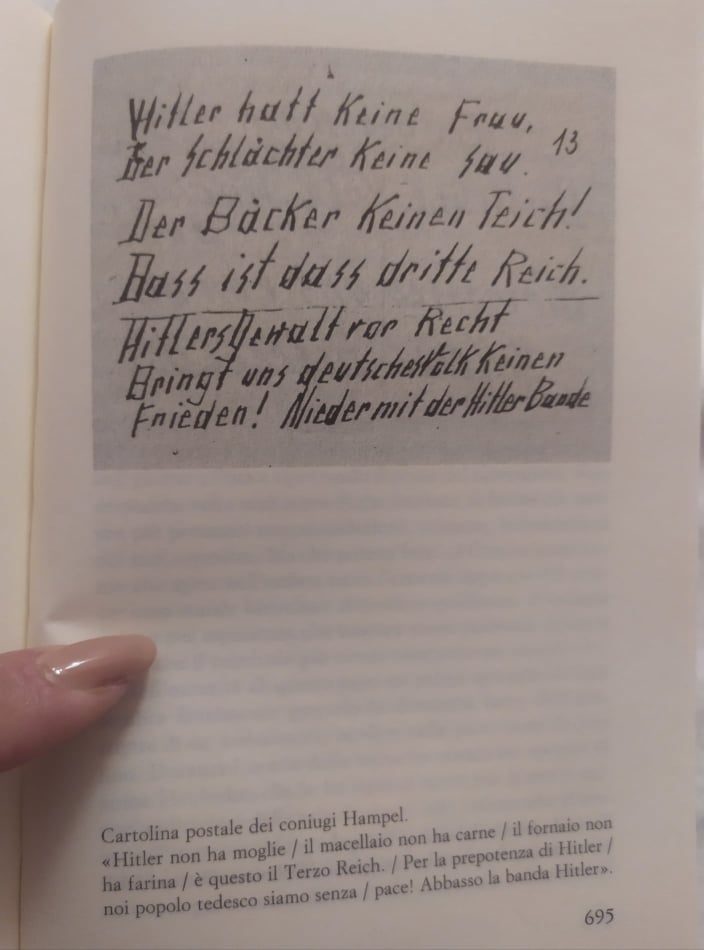 Hitler hatt Keine Frau,
Der Schlächter Keine Sau. 13
Der Bäcker Keinen Teich!
Dass ist dass dritte Reich.
Hitlers Gewalt vor Recht
Bringt uns deutsches Volk Keinen
Frieden! Nieder mit der Hitler Bande
Cartolina postale dei coniugi Hampel.
«Hitler non ha moglie / il macellaio non ha carne / il fornaio non
ha farina / è questo il Terzo Reich. / Per la prepotenza di Hitler /
noi popolo tedesco siamo senza / pace! Abbasso la banda Hitler».
695